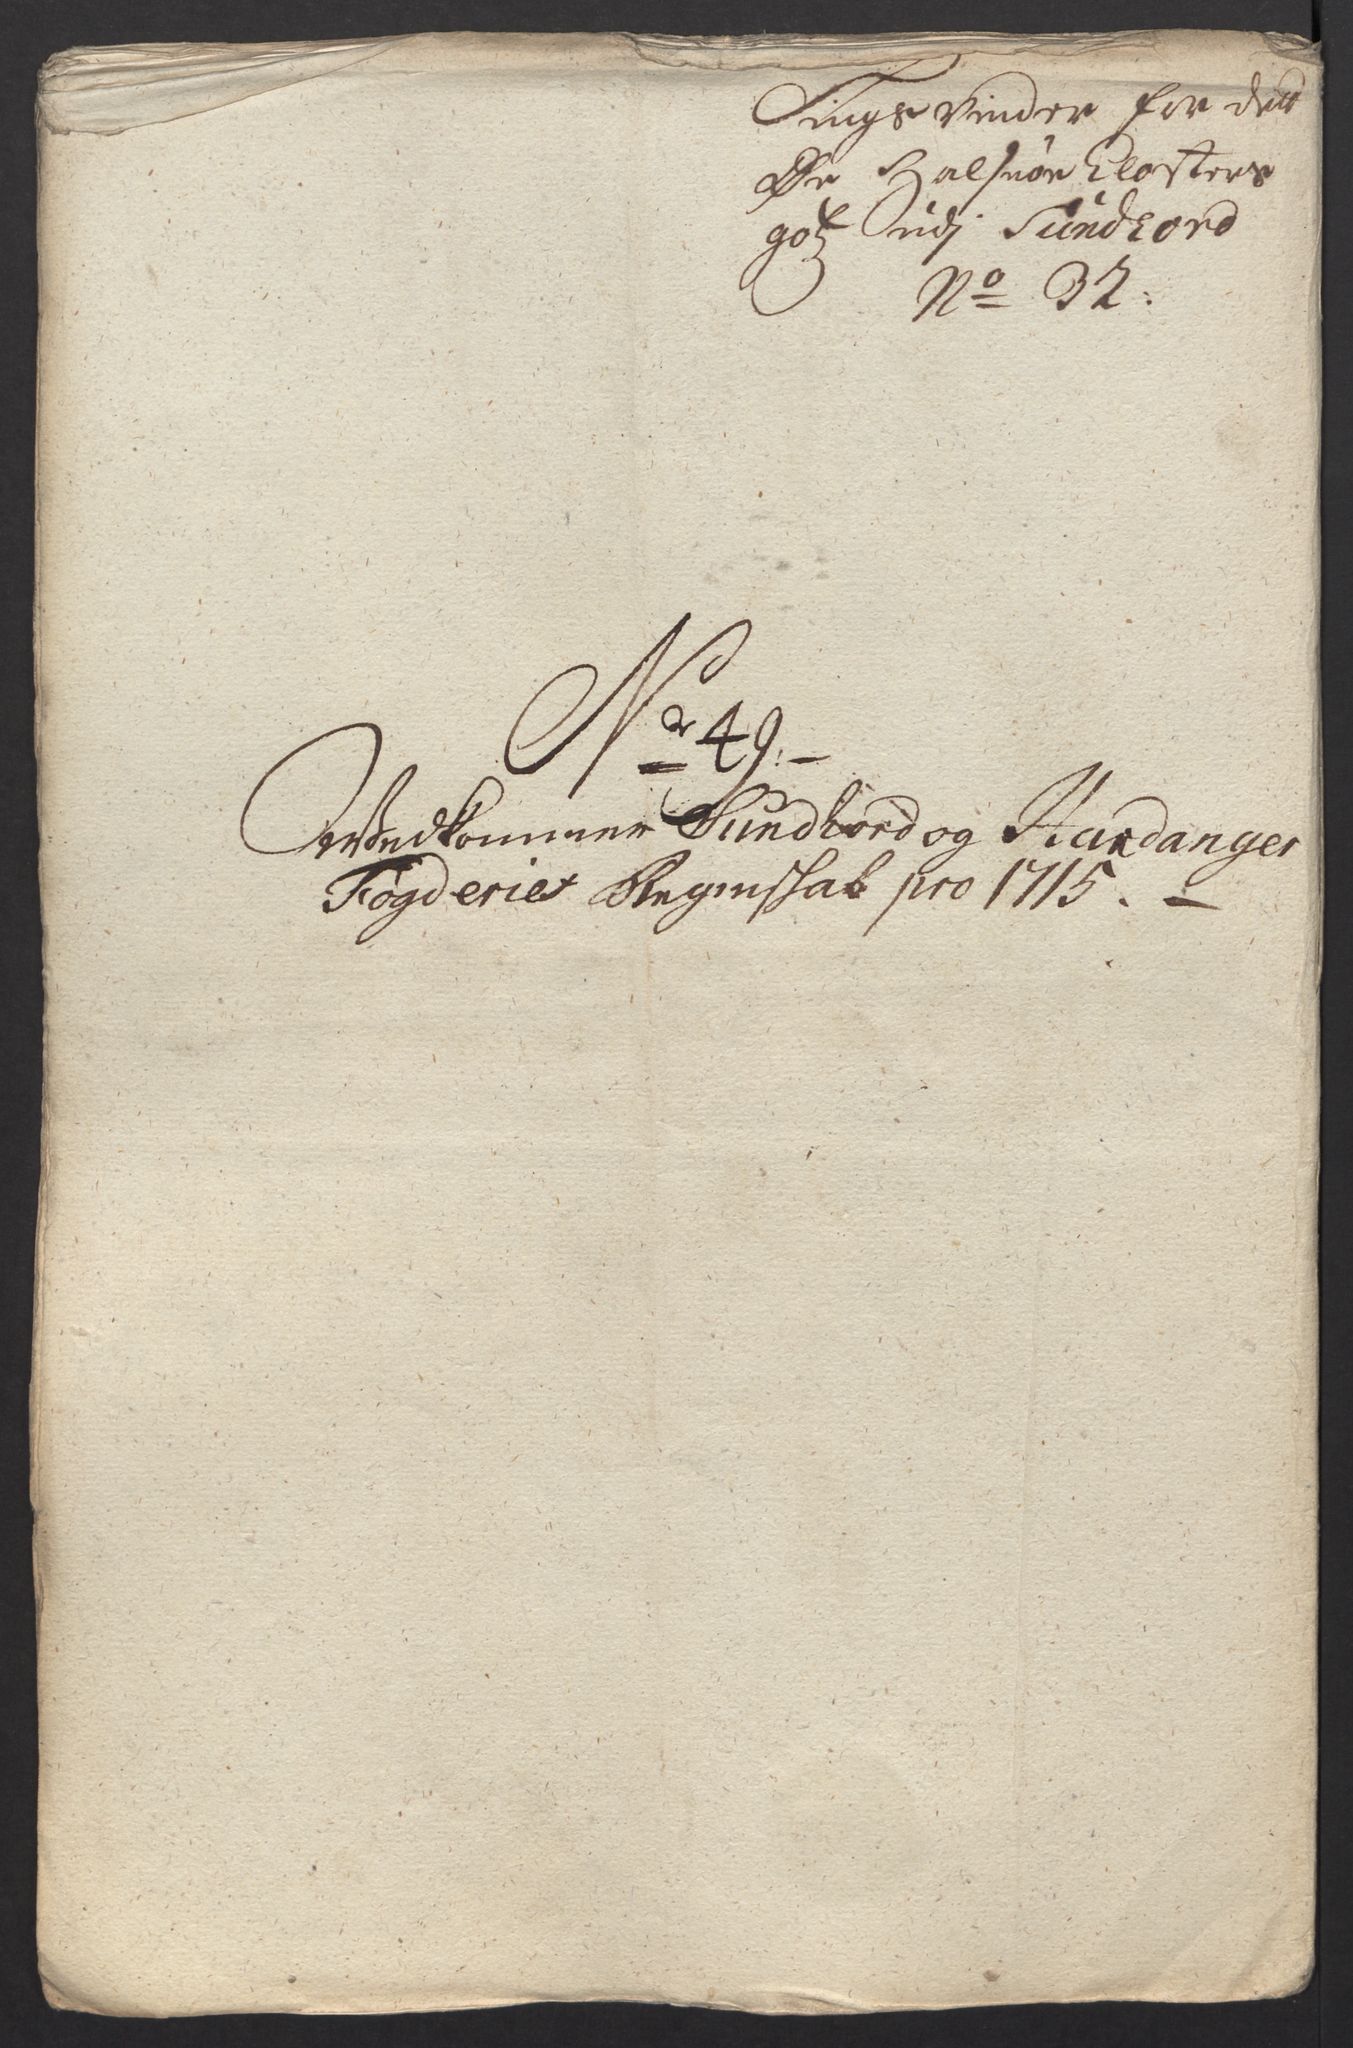 Tings Vinder for dett
Øde Halsnøe Closters
gotz udj Sundhord
No 32.
Nr 49.
Vedkommer Sundhord og Hardanger
Fogderiet Regenschab pro 1715.